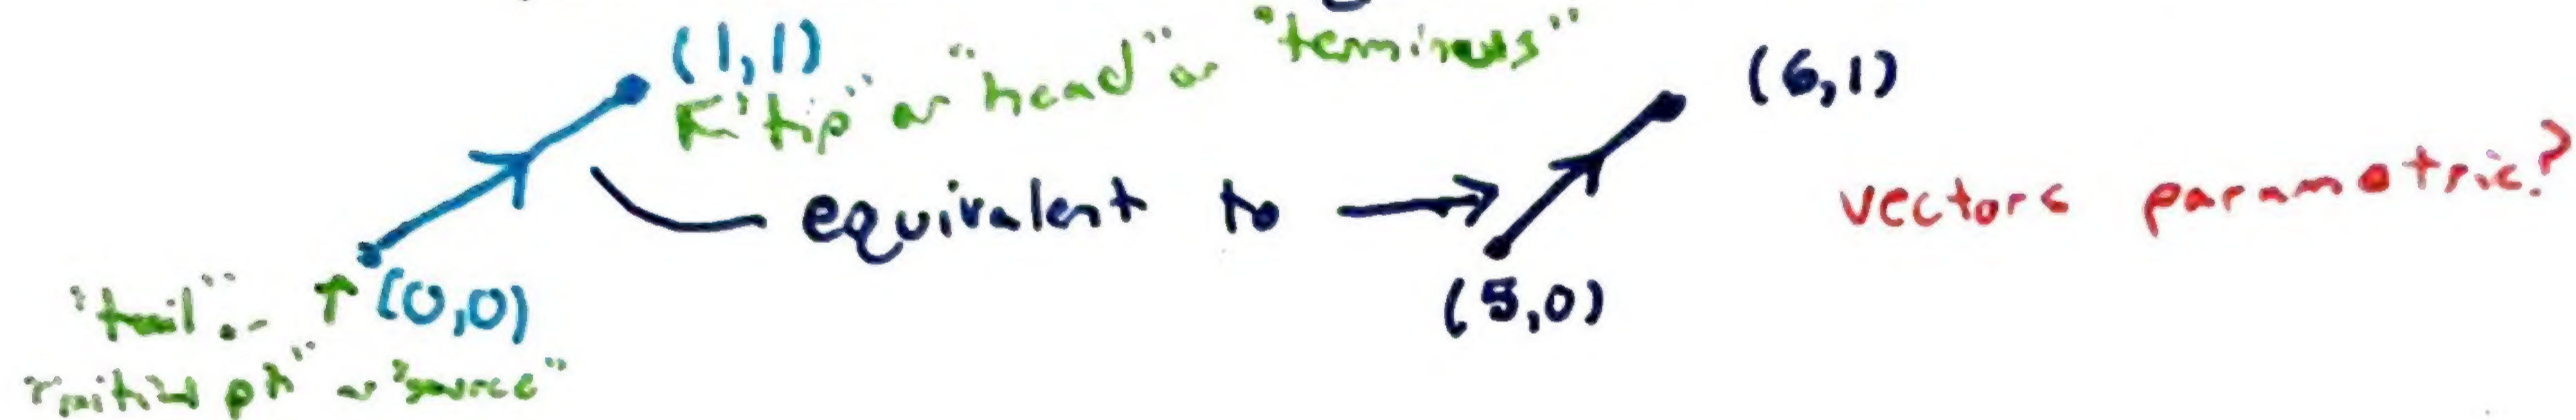 (1,1)
"tip" or "head" or "terminus"
(6,1)
equivalent to
vectors parametric?
"tail" or
(0,0)
(5,0)
"initial pt" or "source"